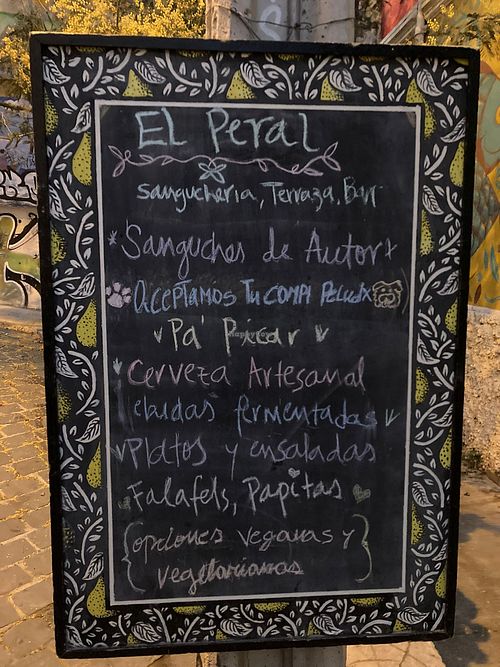 El Peral
Sangucheria, Terraza, Bar
*Sanguches de Autor*
Aceptamos Tu compi Peludx
Pa' Picar
Cerveza Artesanal
fermentadas
Platos y ensaladas
Falafels, Papitas
{opciones veganas y
vegetarianas}